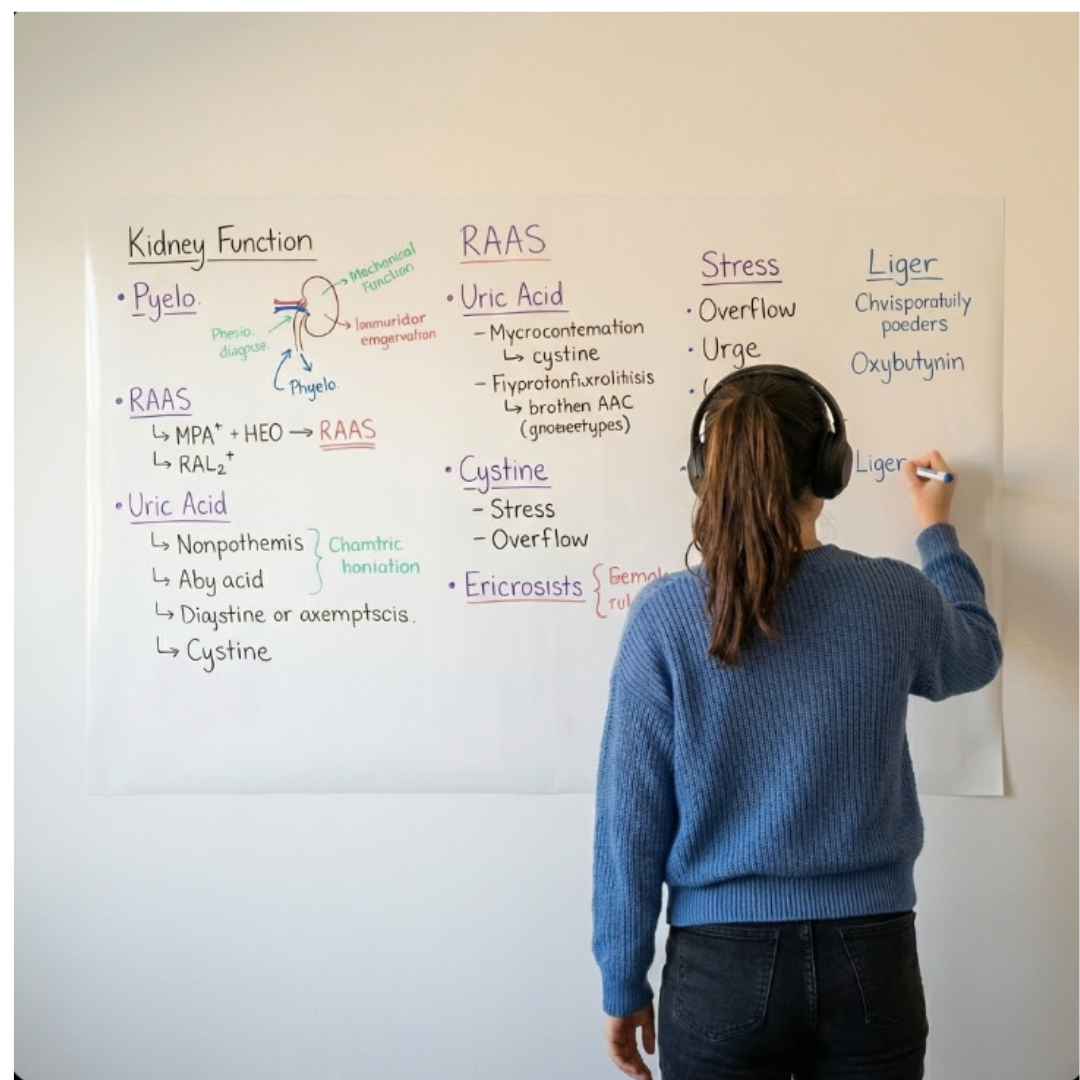 Kidney Function
• Pyelo.
Mechanical
Function
Phesio.
diagpise.
Ionmuridor
emgervation
Phyelo.
• RAAS
↳ MPA⁺ + HEO → RAAS
↳ RAL₂⁺
• Uric Acid
↳ Nonpothemis
↳ Aby acid
Chamtric
honiation
↳ Diajstine or axemptscis.
↳ Cystine
RAAS
• Uric Acid
- Mycrocontemation
↳ cystine
- Fiyprotonfixrolithisis
↳ brothen AAC
(gnoeieetypes)
• Cystine
- Stress
- Overflow
• Ericrosists
Stress
• Overflow
• Urge
Liger
Chvisporatuily
poeders
Oxybutynin
Liger